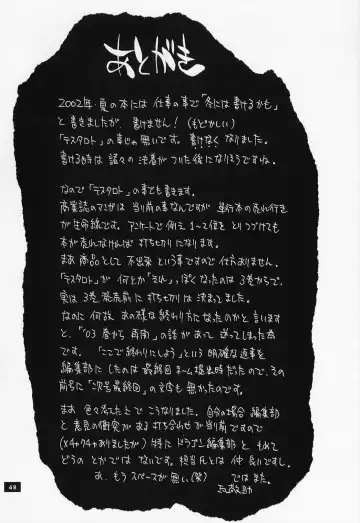 あとがき
2002年・夏の本には 仕事の事で「冬には書けるかも」
と書きましたが、書けません！(もどかしい)
「テスタロト」の事じゃ無いです。書けなくなりました。
書ける時は 諸々の決着が ついた後になりそうですね。
なので「テスタロト」の事でも書きます。
商業誌のマンガは 当り前の事なんですが 単行本の売れ行き
が生命線です。アンケートで例え1〜2位を とりつづけても
本が売れなければ 打ち切りになります。
まあ商品として 不出来 という事ですので仕方ありません。
「テスタロト」が 何とか「それ」っぽくなったのは 3巻からで、
実は 3巻発売前に 打ち切りは 決まってました。
なのに何故 あの様な終わり方になったのかと言いますと
「'03 春から 再開」の話があって 送ってしまった為
です。「ここで終わりにしよう」という 明確な返事を
編集部にしたのは最終回ネーム提出時だったので、その
前号に「次号最終回」の文字も無かったのです。
まあ 色々あったとで こうなりました。自分の場合 編集部
と意見の衝突がある打ち合わせが当り前ですので
(メチャクチャありましたが) 特に ドラゴン編集部と もめて
どうの とかでは ないです。担当氏とは 仲良いですし。
お、もう スペースが無い(笑) ではまた。
48